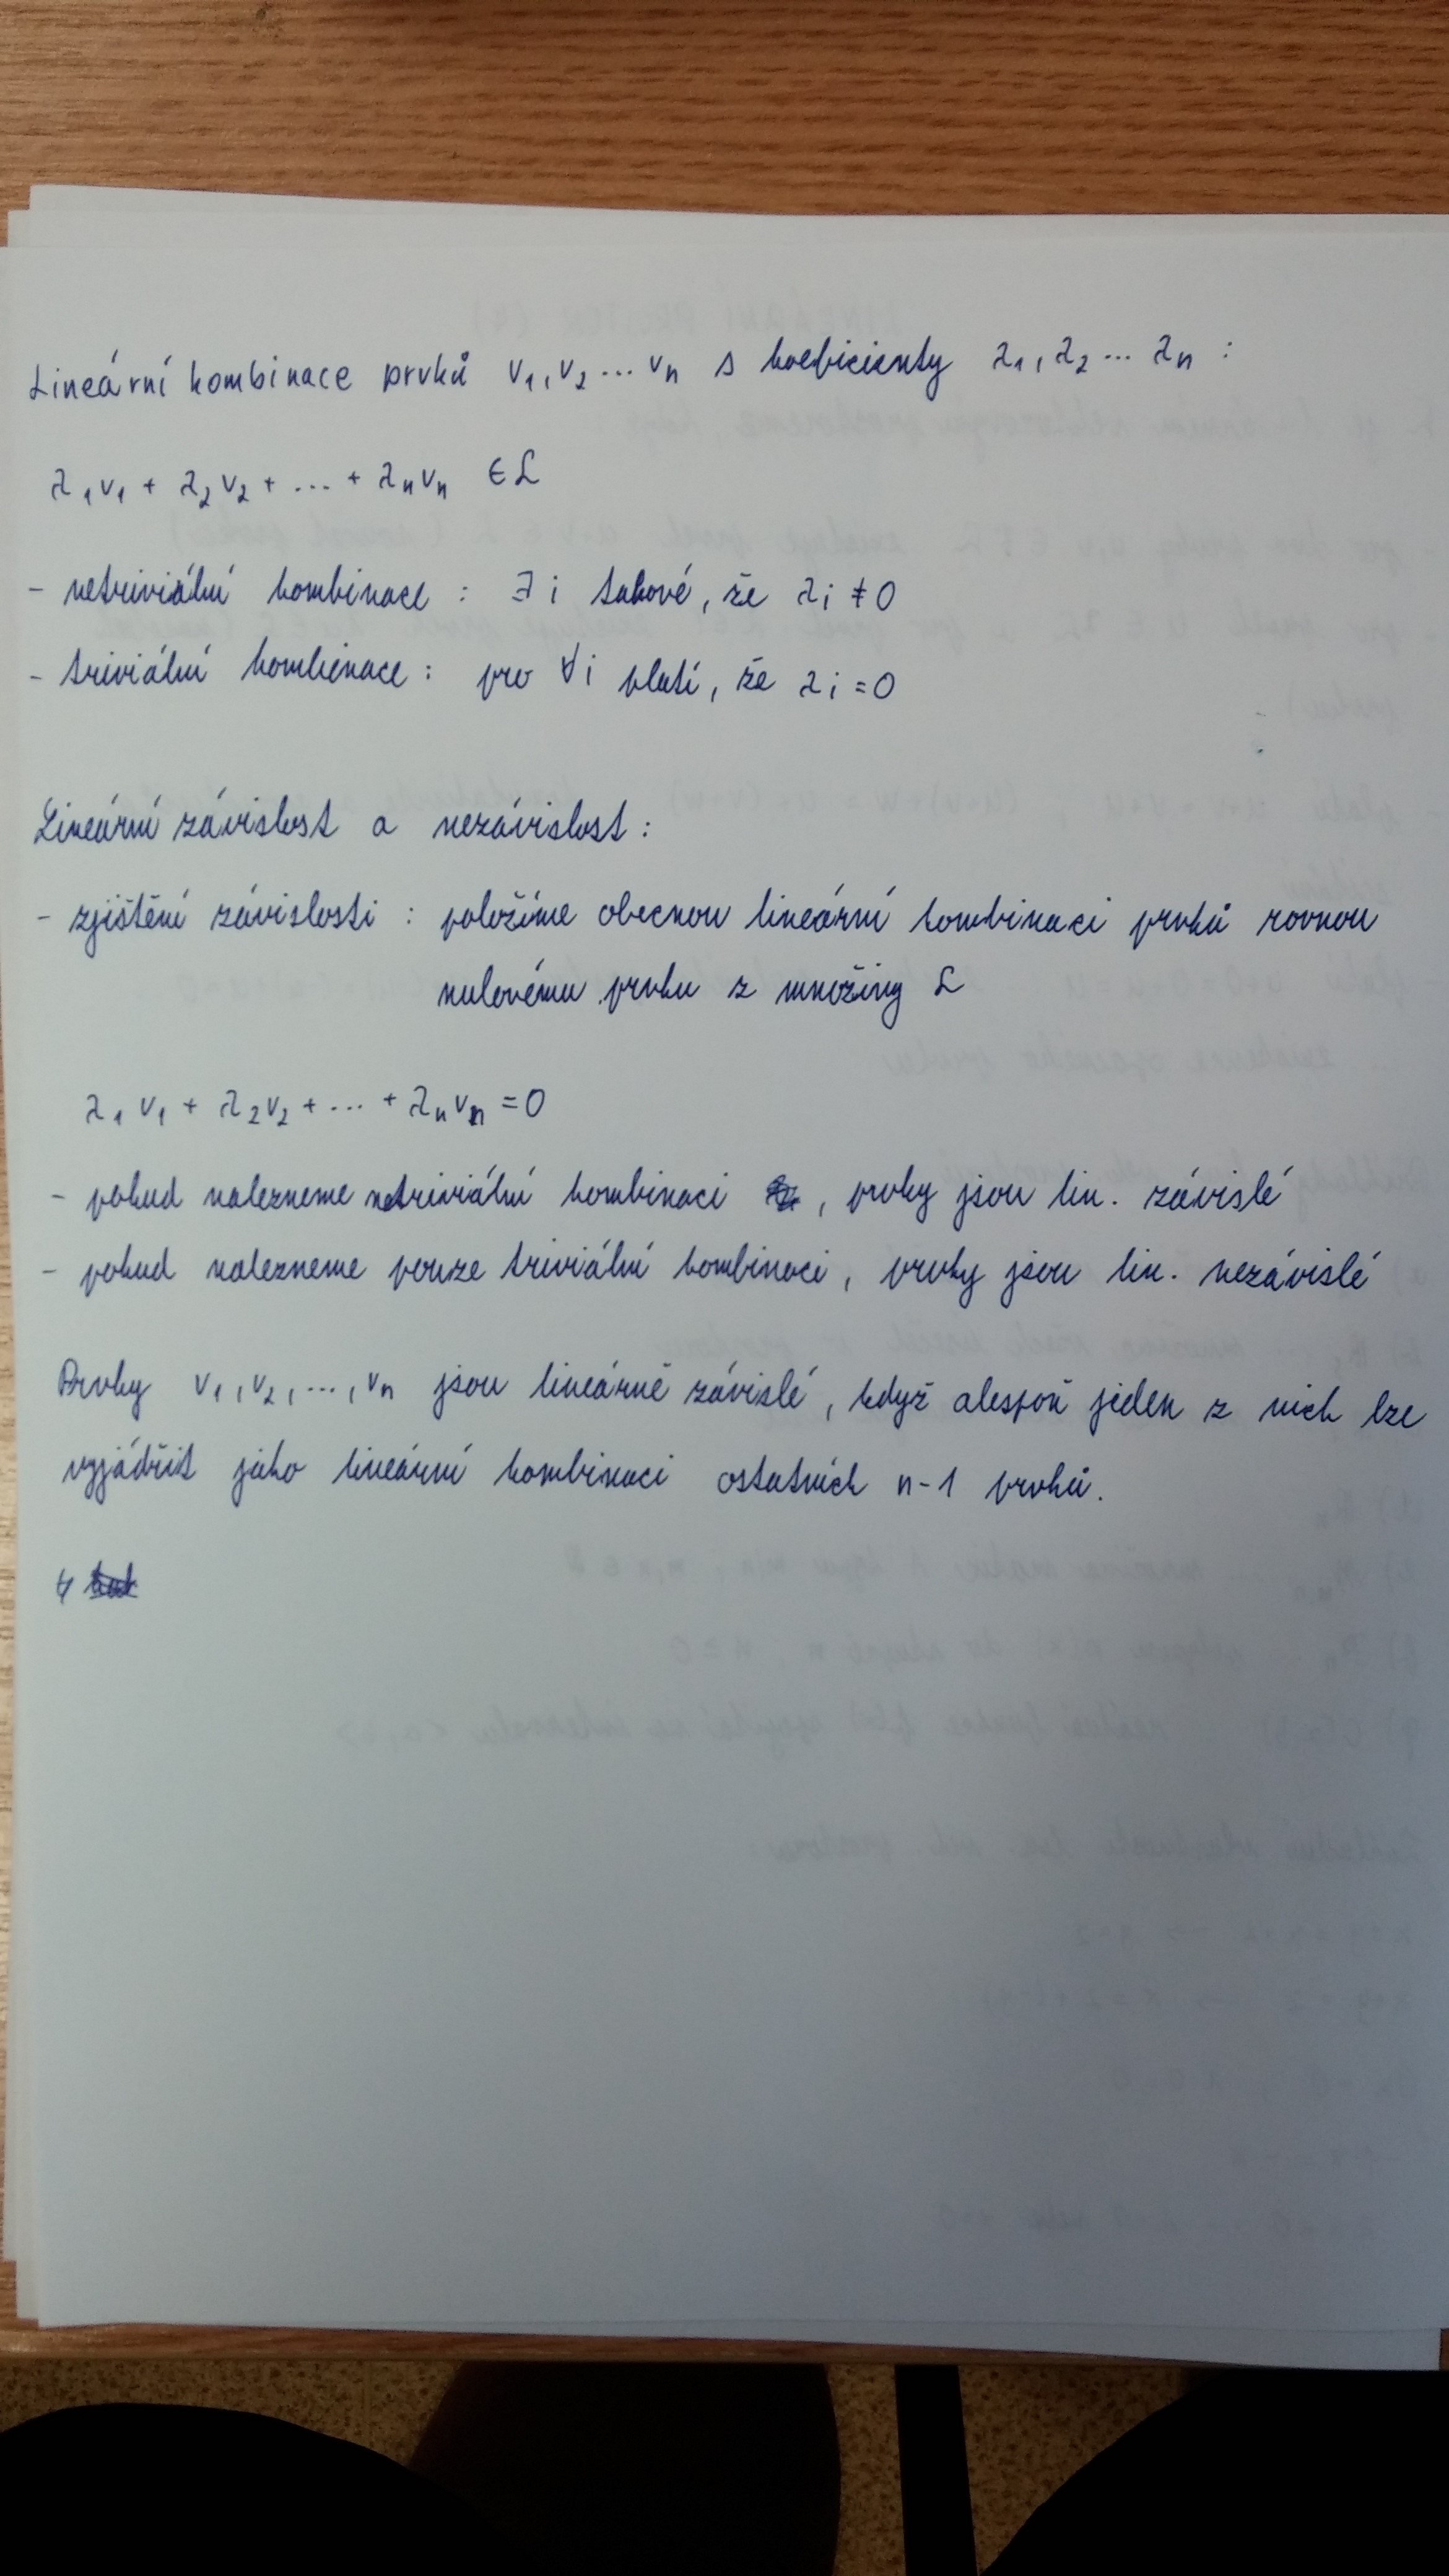 Lineární kombinace prvků v₁, v₂ ... vₙ s koeficienty λ₁, λ₂ ... λₙ :
λ₁v₁ + λ₂v₂ + ... + λₙvₙ ∈ ℒ
- netriviální kombinace : ∃ i takové, že λᵢ ≠ 0
- triviální kombinace : pro ∀i platí, že λᵢ = 0
Lineární závislost a nezávislost :
- zjištění závislosti : položíme obecnou lineární kombinaci prvků rovnou
nulovému prvku z množiny ℒ
λ₁v₁ + λ₂v₂ + ... + λₙvₙ = 0
- pokud nalezneme netriviální kombinaci , prvky jsou lin. závislé
- pokud nalezneme pouze triviální kombinaci, prvky jsou lin. nezávislé
Prvky v₁, v₂, ..., vₙ jsou lineárně závislé, když alespoň jeden z nich lze
vyjádřit jako lineární kombinaci ostatních n-1 prvků.